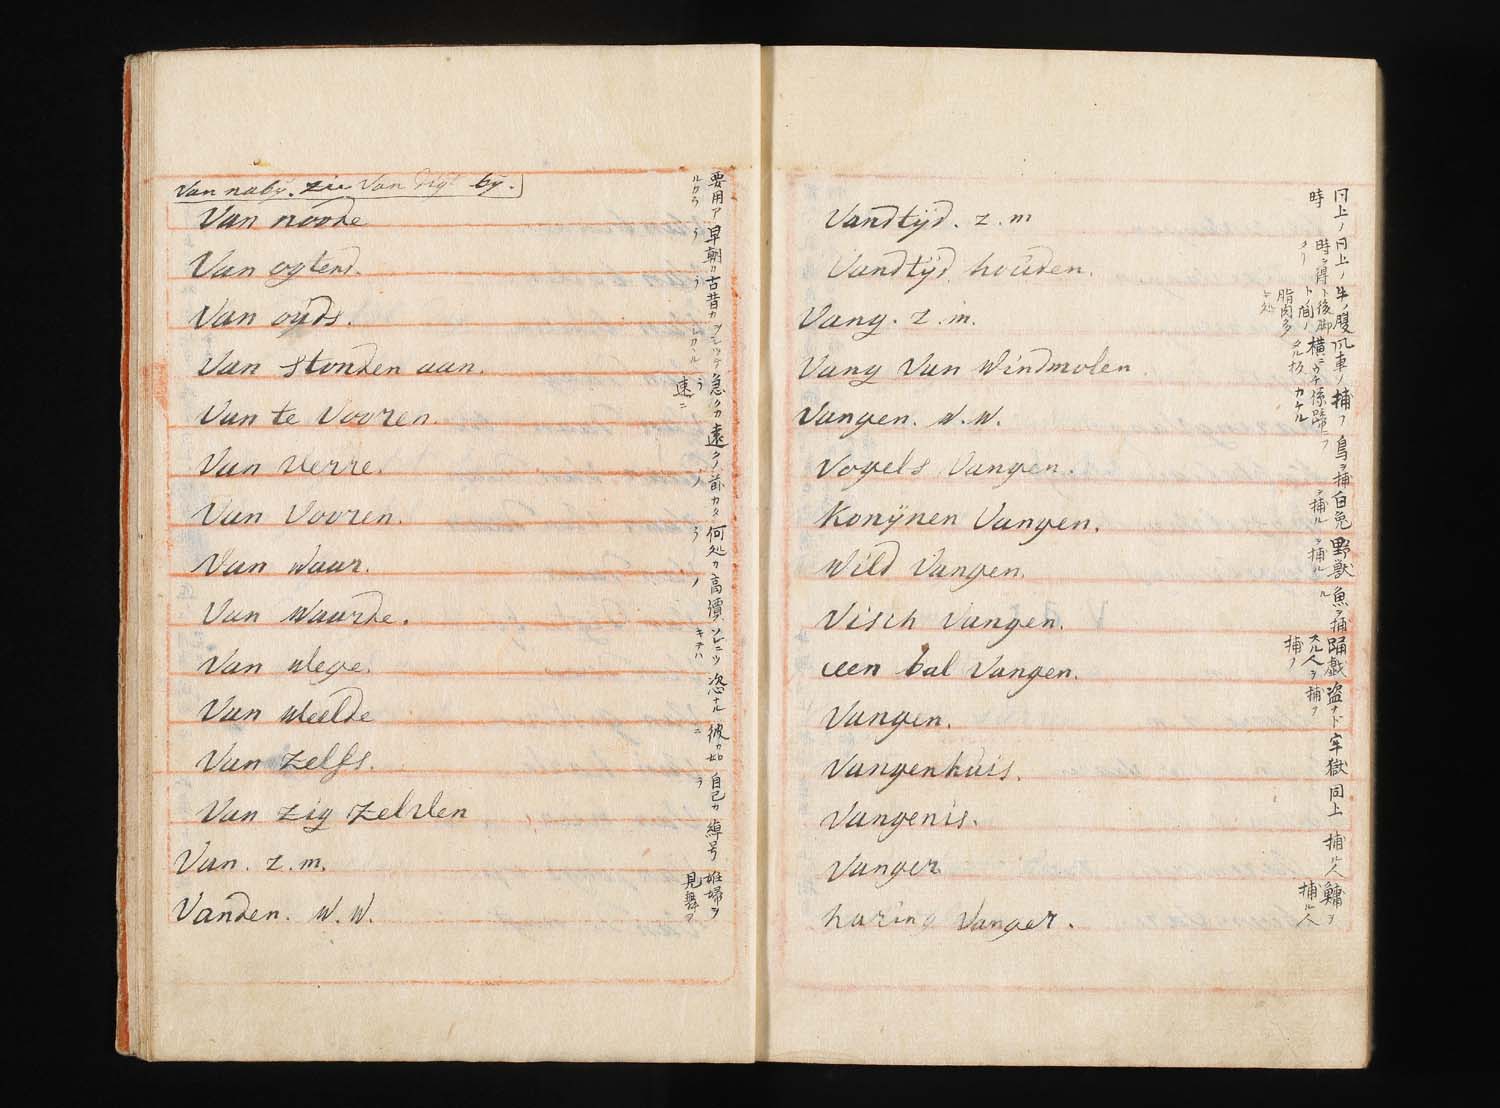 Van naby. zie Van digt by.
Van noode
Van ogtend.
Van oŭds.
Van stonden aan.
Van te Vooren.
Van Verre.
Van Vooren.
Van Waar.
Van Waarde.
Van Wege.
Van Weelde
Van Zelfs.
Van Zig Zelven
Van. z.m.
Vanden. W.W.
要用ア
ルカラ
早朝カ
ラ
古昔カ
ラ
急
速ニ
遠クノ
前カタ
ノ
何処カ
ラ
高價
ノ
恣ナル
彼カ如
自己カ
ラ
綽号
姙婦ヲ
見舞フ
Vandtÿd. z.m
Vandtÿd houden.
Vang. z.m.
Vang Van Windmolen
Vangen. W.W.
Vogels Vangen.
Konÿnen Vangen.
Wild Vangen.
Visch Vangen.
een bal Vangen.
Vangen.
Vangenhuis.
Vangenis.
Vanger.
haring Vanger.
同上ノ
時
同上ノ
時ヲ得
タリ
牛ノ腹
ト後脚
ト間ノ
脂肉多
キ処
風車ノ
捕フ
鳥ヲ捕
白兎
ヲ捕ル
野獣
ヲ捕ル
魚ヲ捕
ル
踊戯
スル人ヲ
捕ノ
盗ナド
捕フ
牢獄
同上
捕ル人
鱅ヲ
捕ル人